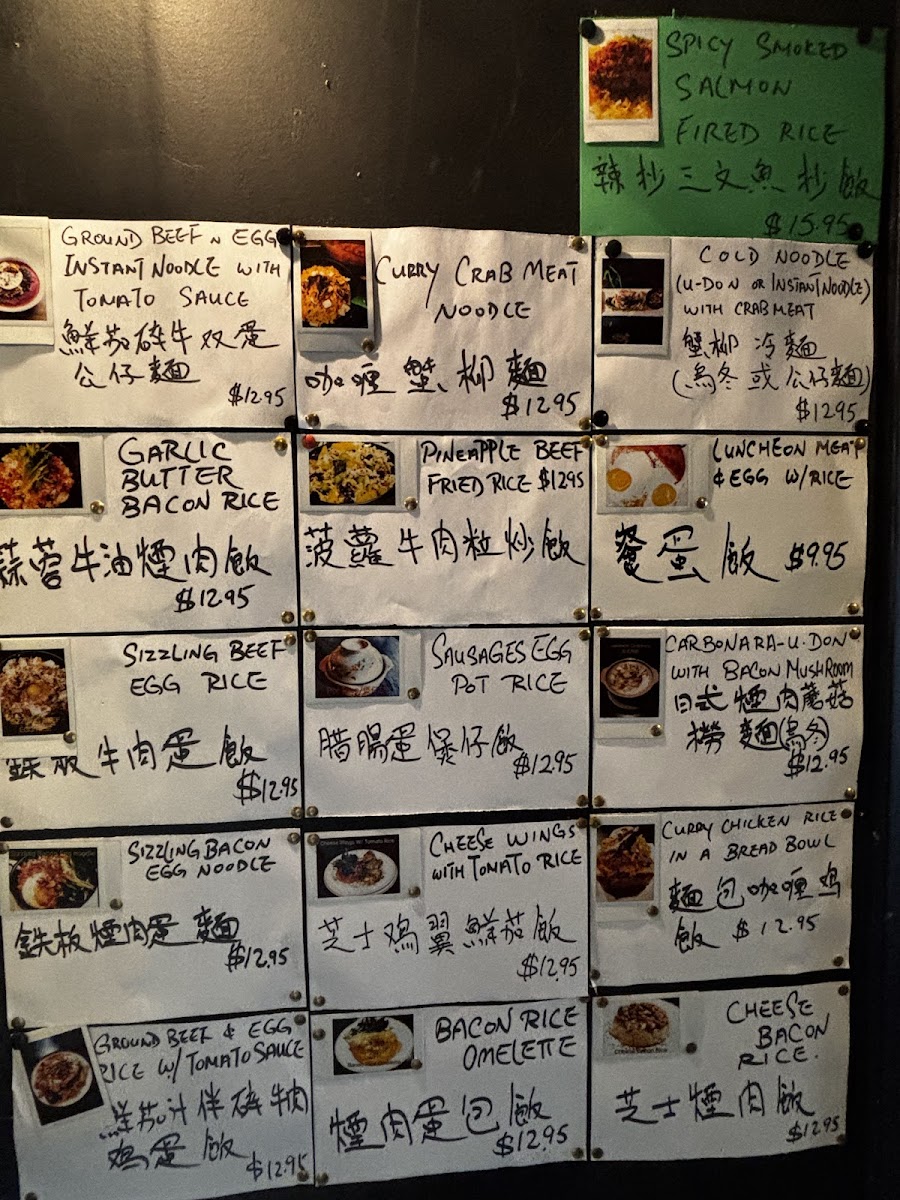 SPICY SMOKED
SALMON
FIRED RICE
辣炒三文魚炒飯
$15.95
GROUND BEEF N EGG
INSTANT NOODLE WITH
TOMATO SAUCE
鮮茄碎牛双蛋
公仔麵
$12.95
CURRY CRAB MEAT
NOODLE
咖喱蟹柳麵
$12.95
COLD NOODLE
(U-DON OR INSTANT NOODLE)
WITH CRABMEAT
蟹柳冷麵
(烏冬或公仔麵)
$12.95
GARLIC
BUTTER
BACON RICE
蒜蓉牛油煙肉飯
$12.95
PINEAPPLE BEEF
FRIED RICE $12.95
菠蘿牛肉粒炒飯
LUNCHEON MEAT
& EGG W/RICE
餐蛋飯 $9.95
SIZZLING BEEF
EGG RICE
鉄板牛肉蛋飯
$12.95
SAUSAGES EGG
POT RICE
腊腸蛋煲仔飯
$12.95
CARBONARA-U-DON
WITH BACON MUSHROOM
日式煙肉蘑菇
撈麵(烏冬)
$12.95
SIZZLING BACON
EGG NOODLE
鉄板煙肉蛋麵
$12.95
Cheese Wings W/ Tomato Rice
CHEESE WINGS
WITH TOMATO RICE
芝士鸡翼鮮茄飯
$12.95
CURRY CHICKEN RICE
IN A BREAD BOWL
麵包咖喱鸡
飯 $12.95
GROUND BEEF & EGG
RICE W/TOMATO SAUCE
鮮茄汁伴碎牛肉
鸡蛋飯
$12.95
BACON RICE
OMELETTE
煙肉蛋包飯
$12.95
CHEESE
BACON
RICE.
芝士煙肉飯
$12.95